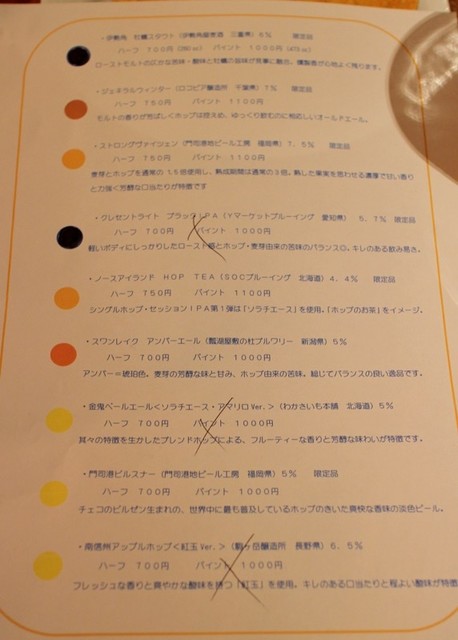 ・伊勢角 牡蠣スタウト（伊勢角屋麦酒 三重県）6% 限定品
ハーフ 700円(280cc) パイント 1000円(473cc)
ローストモルトの広がる苦味・酸味と牡蠣の旨味が見事に融合。燻製香が心地よく残ります。
・ジェネラルウィンター（ロコビア醸造所 千葉県）7% 限定品
ハーフ 750円 パイント 1100円
モルトの香りが芳ばしくホップは控えめ、ゆっくり飲むのに相応しいオールドエール。
・ストロングヴァイシェン（門司港地ビール工房 福岡県）7.5% 限定品
ハーフ 750円 パイント 1100円
麦芽とホップを通常の1.5倍使用し、熟成期間は通常の3倍。熟した果実を思わせる濃厚で甘い香り
と力強く芳醇な口当たりが特徴です
・クレセントライト ブラックIPA（Yマーケットブルーイング 愛知県） 5.7% 限定品
ハーフ 700円 パイント 1000円
軽いボディにしっかりしたロースト感とホップ・麦芽由来の苦味のバランス◎。キレのある飲み易さ。
・ノースアイランド HOP TEA（SOCブルーイング 北海道）4.4% 限定品
ハーフ 750円 パイント 1100円
シングルホップ・セッションIPA第1弾は「ソラチエース」を使用。「ホップのお茶」をイメージ。
・スワンレイク アンバーエール（瓢湖屋敷の杜ブルワリー 新潟県）5%
ハーフ 700円 パイント 1000円
アンバー＝琥珀色。麦芽の芳醇な味と甘み、ホップ由来の苦味。総じてバランスの良い逸品です。
・金鬼ペールエール＜ソラチエース・アマリロVer.＞（わかさいも本舗 北海道）5%
ハーフ 700円 パイント 1000円
其々の特徴を生かしたブレンドホップによる、フルーティーな香りと芳醇な味わいが特徴です。
・門司港ピルスナー（門司港地ビール工房 福岡県）5% 限定品
ハーフ 700円 パイント 1000円
チェコのピルゼン生まれの、世界中に最も普及しているホップのきいた爽快な香味の淡色ビール。
・南信州アップルホップ＜紅玉Ver.＞（駒ヶ岳醸造所 長野県）6.5%
ハーフ 700円 パイント 1000円
フレッシュな香りと爽やかな酸味を持つ「紅玉」を使用。キレのある口当たりと程よい酸味が特徴